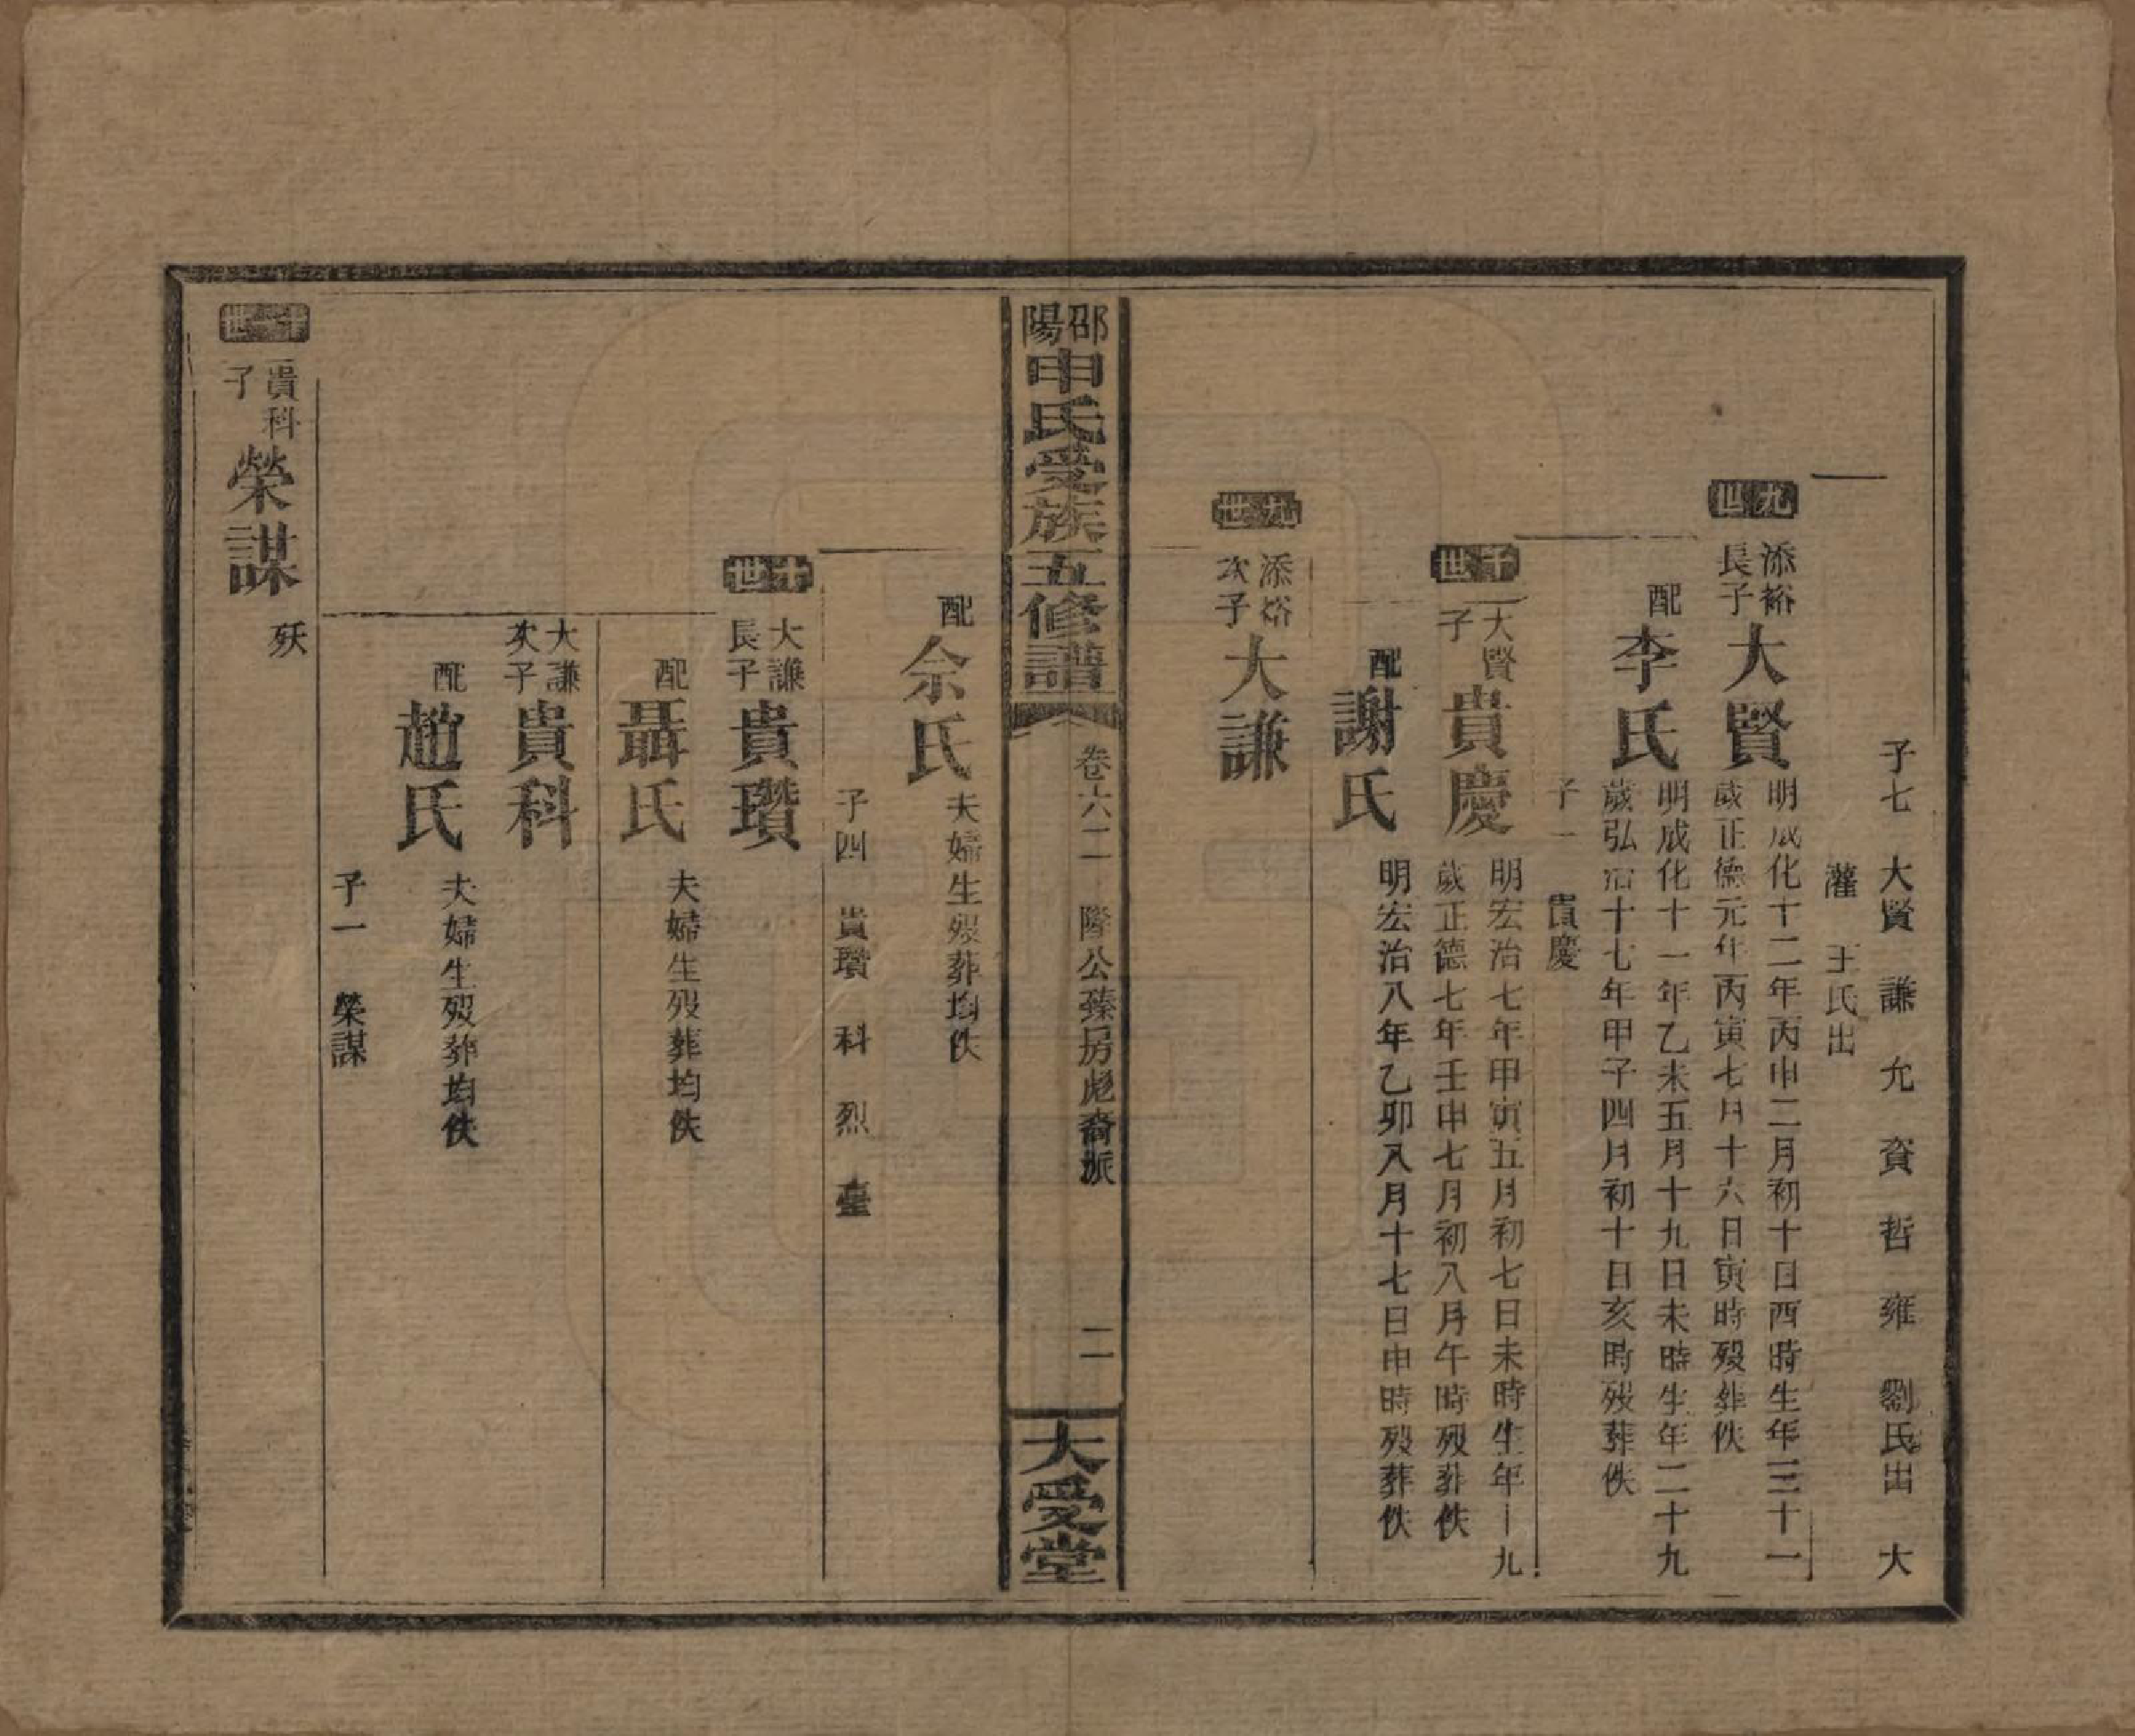 子七　大賢　謙　允　資　哲　雍　劉氏出　大
灌　王氏出
九世
添裕長子
大賢
明成化十二年丙申二月初十日酉時生年三十一
歲正德元年丙寅七月十六日寅時歿葬佚
配
李氏
明成化十一年乙未五月十九日未時生年二十九
歲弘治十七年甲子四月初十日亥時歿葬佚
子一　貴慶
十世
大賢子
貴慶
明宏治七年甲寅五月初七日未時生年十九
歲正德七年壬申七月初八月午時歿葬佚
配
謝氏
明宏治八年乙卯八月十七日申時歿葬佚
九世
添裕次子
大謙
邵陽申氏受族五修譜
卷六二　隆公臻房彪裔派　二
大受堂
配
佘氏
夫婦生歿葬均佚
子四　貴瓚　科　烈　臺
十世
大謙長子
貴瓚
配
聶氏
夫婦生歿葬均佚
大謙次子
貴科
配
趙氏
夫婦生歿葬均佚
子一　榮謀
十一世
貴科子
榮謀
殀